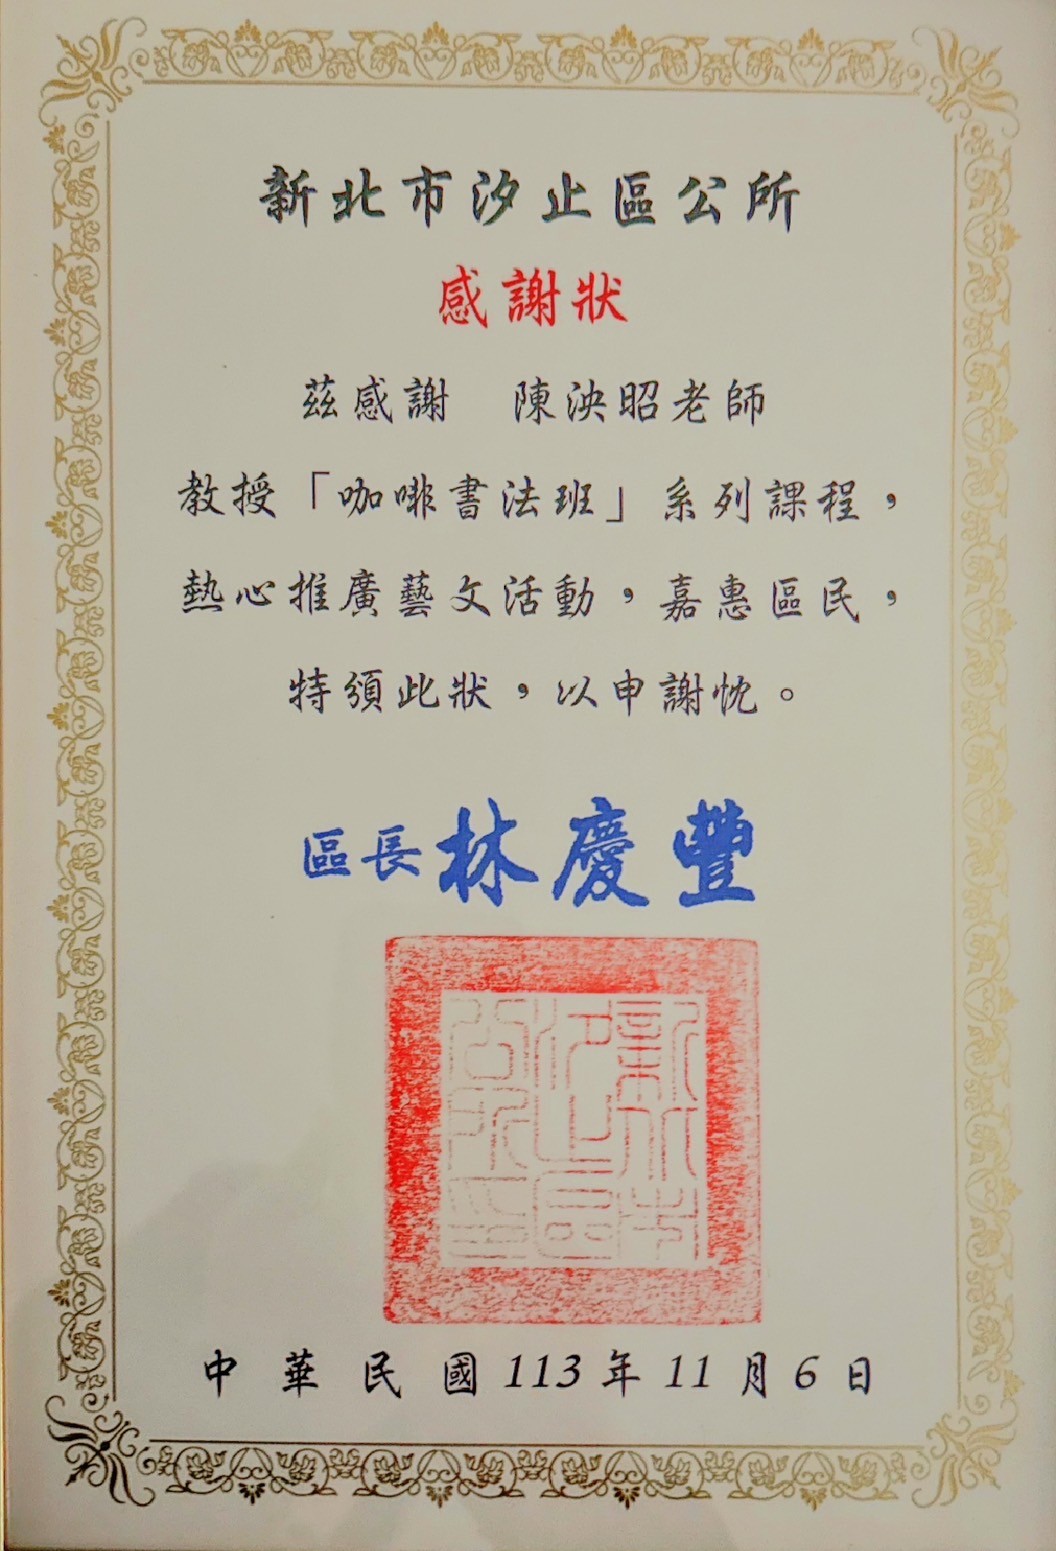 新北市汐止區公所
感謝狀
茲感謝　陳泱昭老師
教授「咖啡書法班」系列課程，
熱心推廣藝文活動，嘉惠區民，
特頒此狀，以申謝忱。
區長林慶豐
新北市汐止區公所印
中華民國113年11月6日